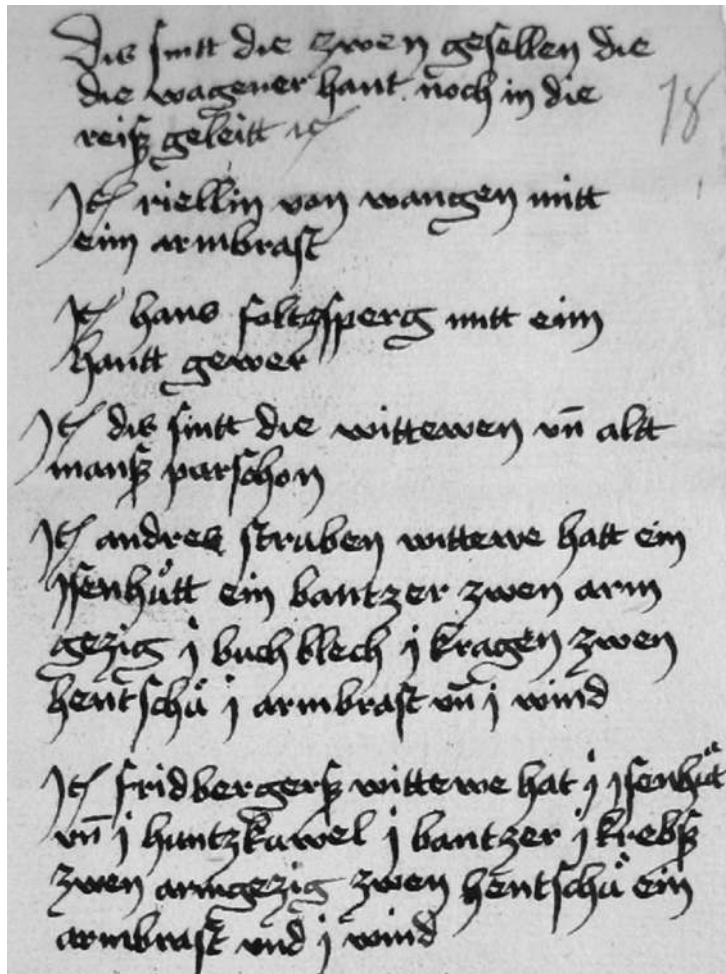 Dis sintt die zwen gesellen die
die wagener hant noch in die
reisß geleitt ꝛc
18
Jt riellin von wangen mitt
eim armbrast
Jt hans foltzsperg mitt eim
hantt gewer
Jt dis sintt die wittewen vn̄ altt
mansß parschon
Jt andres struben wittewe hatt ein
Jsenhuͦtt ein bantzer zwen arm
gezig j buch blech j kragen zwen
hentschuͦ j armbrast vn̄ j wind
Jt fridbergersß wittewe hat j jsenhuͦt
vn̄ j huntzkawel j bantzer j krebsß
zwen armgezig zwen hentschuͦ ein
armbrast vnd j wind